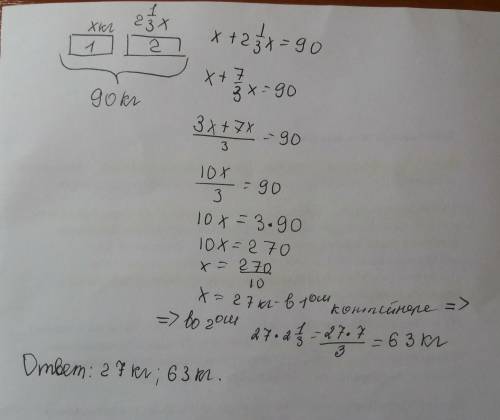 xкг 2 1/3 x
1 2
90кг
x + 2 1/3 x = 90
x + 7/3 x = 90
3x + 7x / 3 = 90
10x / 3 = 90
10x = 3 • 90
10x = 270
x = 270 / 10
x = 27кг - в 1ом контейнере =>
=> во 2ом 27 • 2 1/3 = 27 • 7 / 3 = 63 кг
Ответ: 27кг; 63кг.